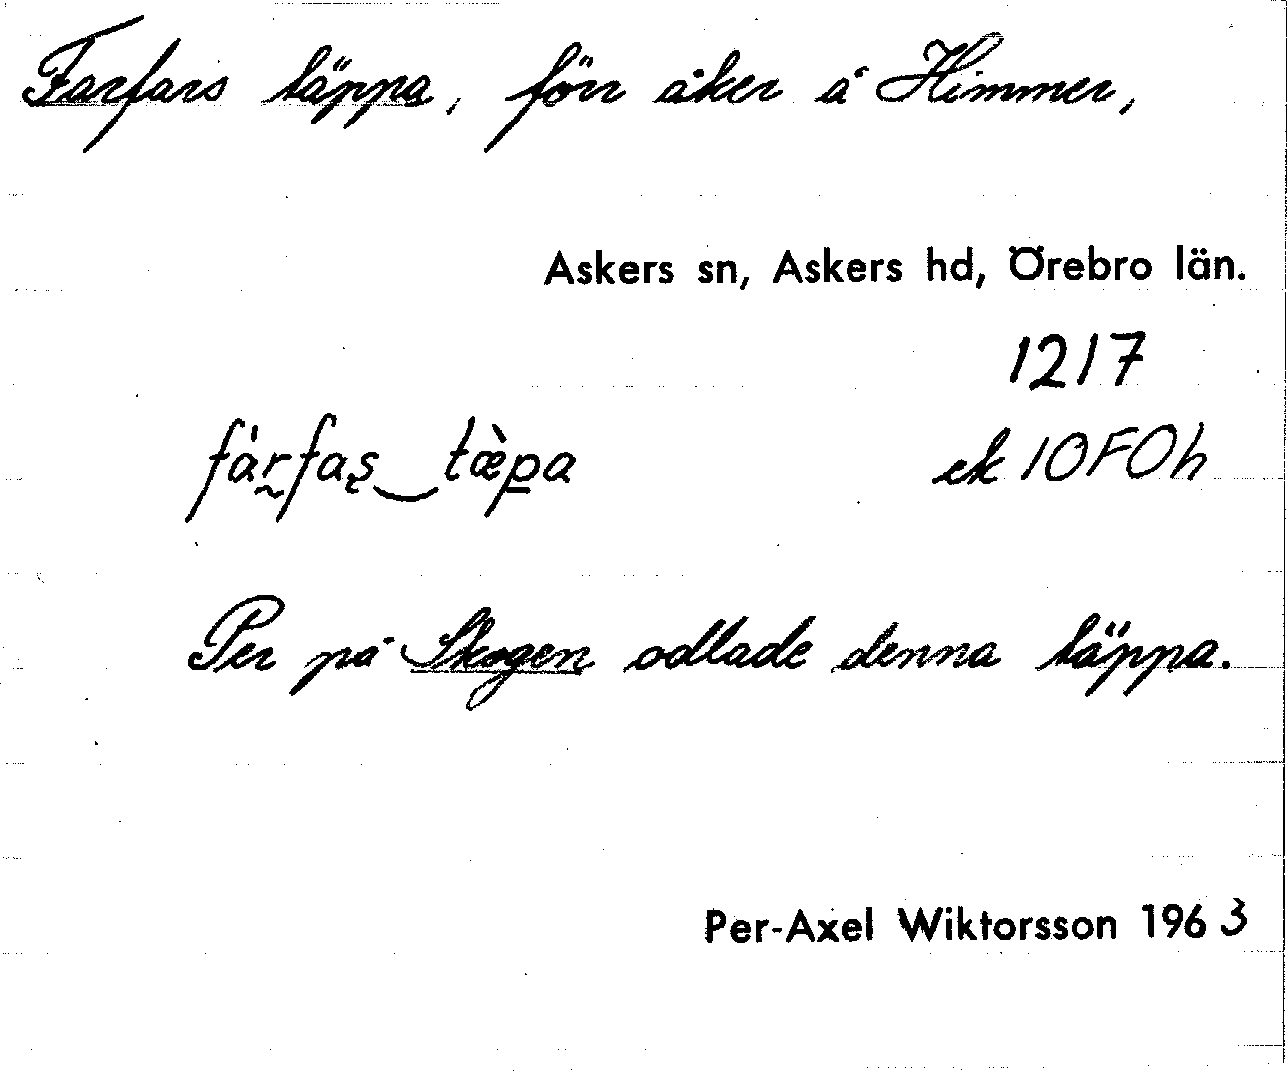 Farfars täppa, förr åker å Himmer,
Askers sn, Askers hd, Örebro län.
1217
fàr̰faş‿tæ̀p̲a ek 10F0h
Per på Skogen odlade denna täppa.
Per-Axel Wiktorsson 1963